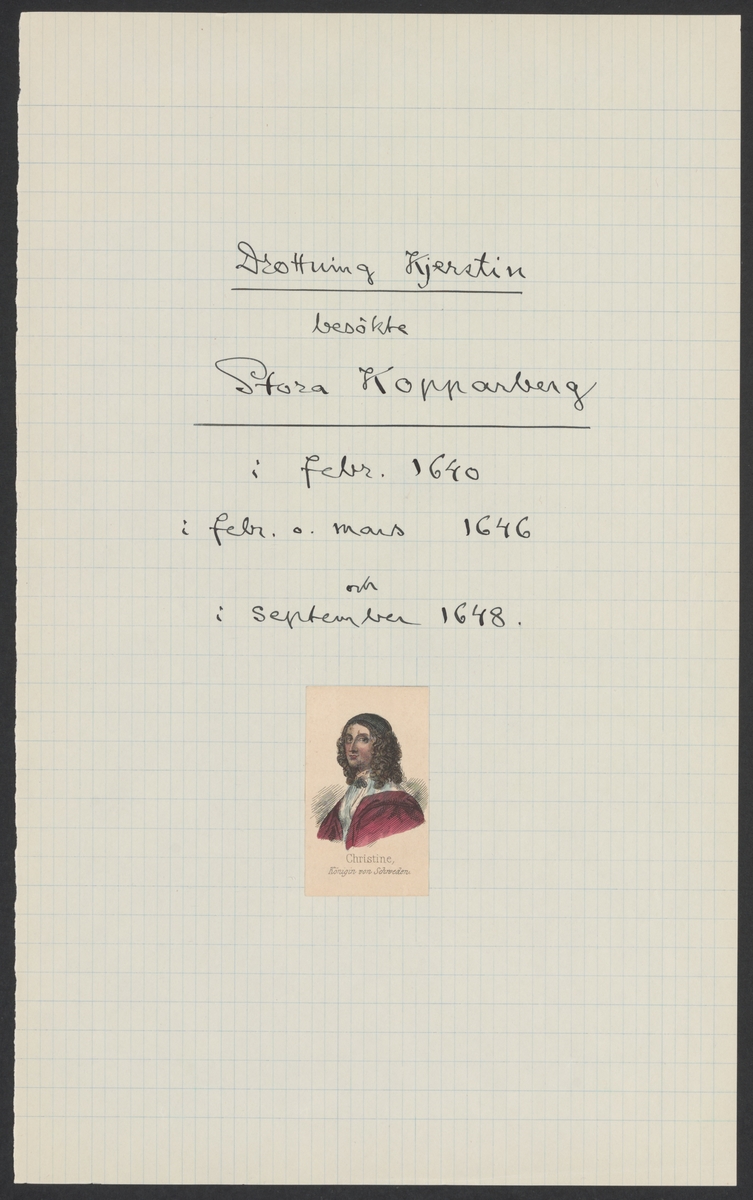 Drottning Kjerstin
besökte
Stora Kopparberg
i febr. 1640
i febr. o. mars 1646
och
i september 1648.
Christine,
Königin von Schweden.